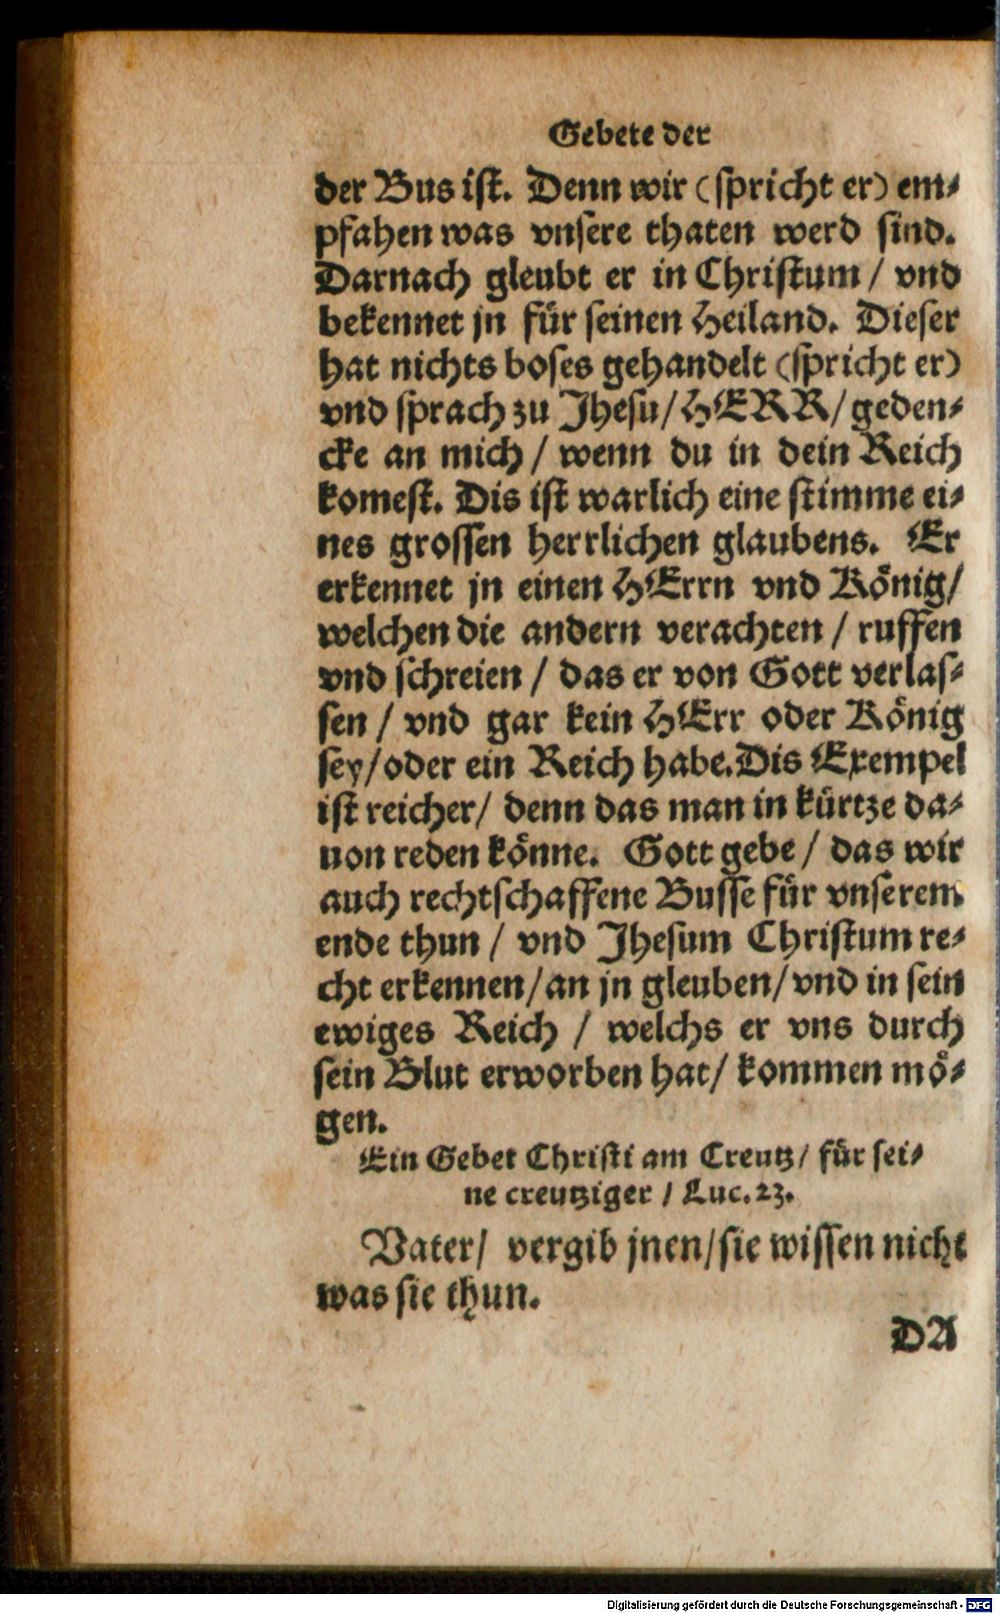 Gebete der
der Bus ist. Denn wir (spricht er) em⸗
pfahen was vnsere thaten werd sind.
Darnach gleubt er in Christum / vnd
bekennet jn für seinen Heiland. Dieser
hat nichts boses gehandelt (spricht er)
vnd sprach zu Jhesu / HERR / geden⸗
cke an mich / wenn du in dein Reich
komest. Dis ist warlich eine stimme ei⸗
nes grossen herrlichen glaubens. Er
erkennet jn einen HErrn vnd König /
welchen die andern verachten / ruffen
vnd schreien / das er von Gott verlas⸗
sen / vnd gar kein HErr oder König
sey / oder ein Reich habe. Dis Exempel
ist reicher / denn das man in kürtze da⸗
uon reden könne. Gott gebe / das wir
auch rechtschaffene Busse für vnserem
ende thun / vnd Jhesum Christum re⸗
cht erkennen / an jn gleuben / vnd in sein
ewiges Reich / welchs er vns durch
sein Blut erworben hat / kommen mö⸗
gen.
Ein Gebet Christi am Creutz / für sei⸗
ne creutziger / Luc. 23.
Vater / vergib jnen / sie wissen nicht
was sie thun.
DA
Digitalisierung gefördert durch die Deutsche Forschungsgemeinschaft - DFG